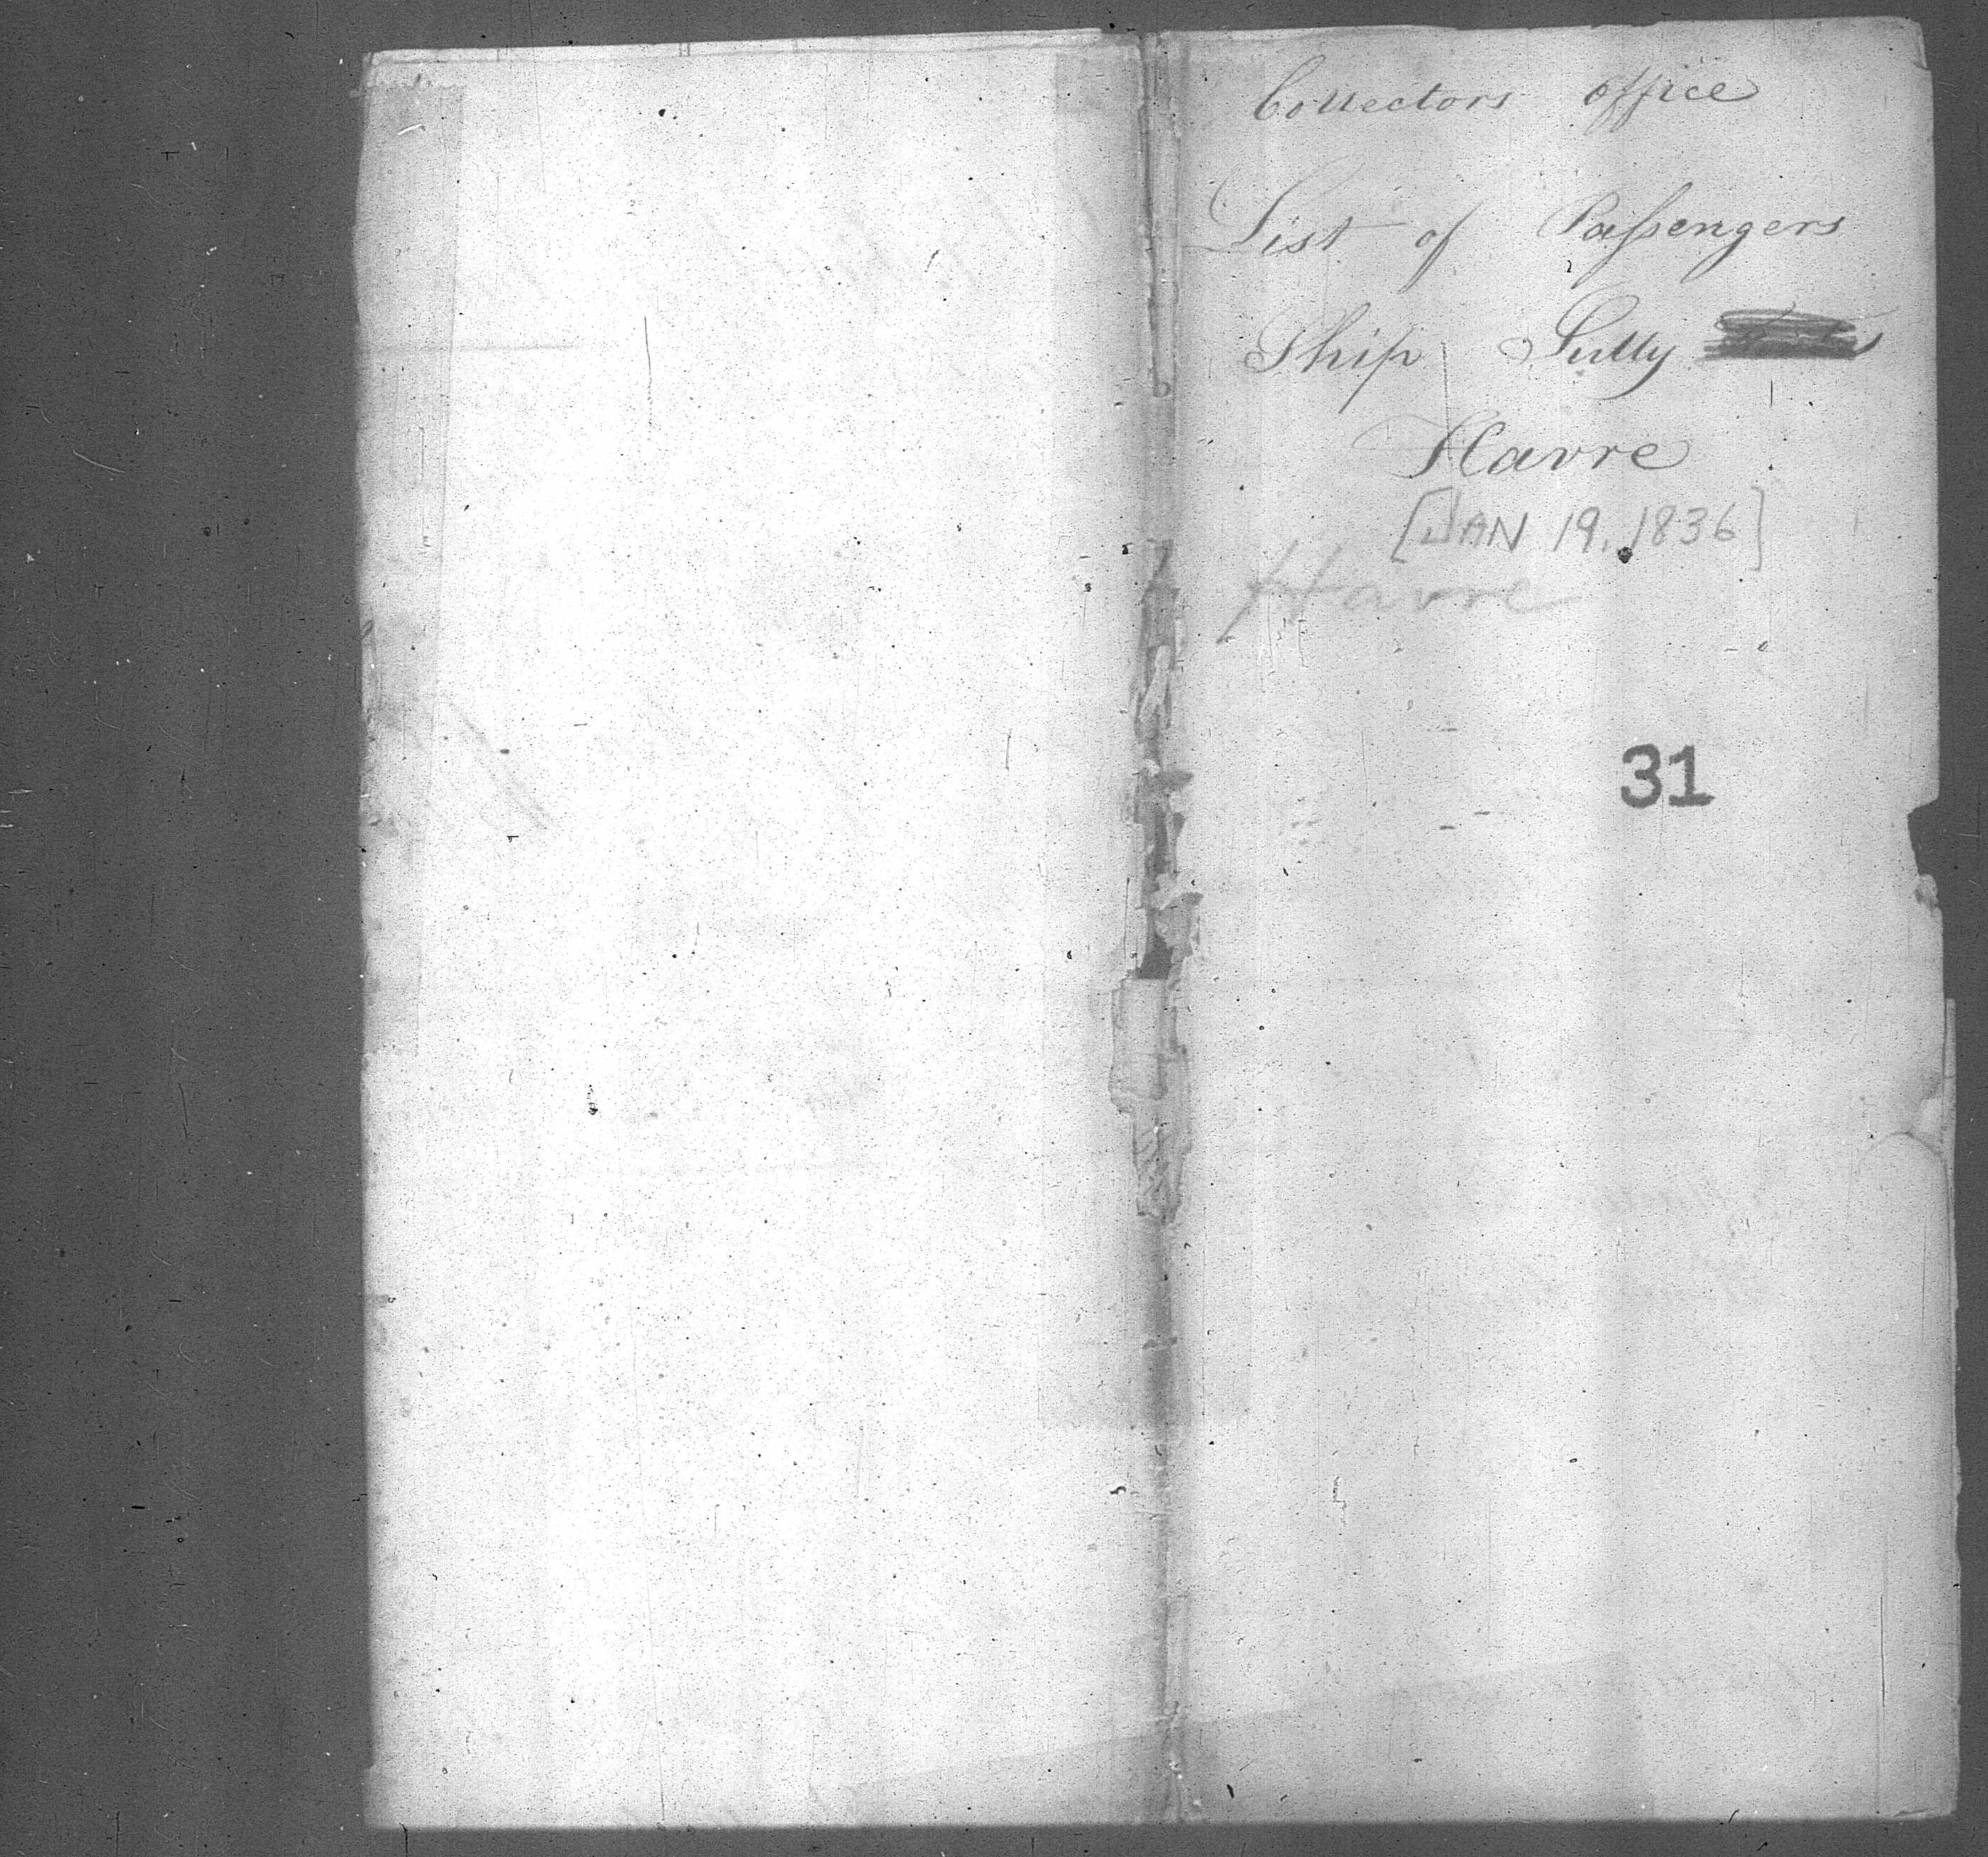 Collectors office
List of Passengers
Ship Sully
Havre
[JAN 19, 1836]
Havre
31